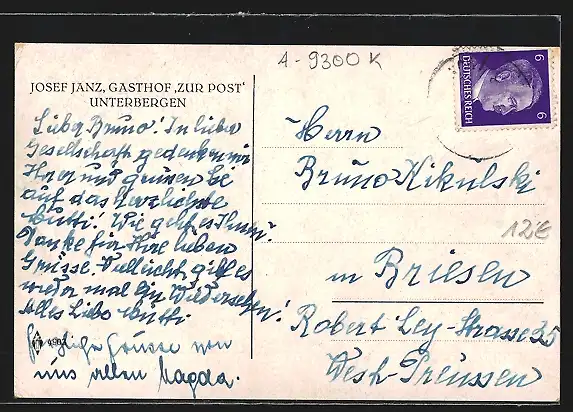 A-9300 K
JOSEF JANZ, GASTHOF ‚ZUR POST‘
UNTERBERGEN
Lieber Bruno! In lieber
Gesellschaft gedenken wir
Ihrer und grüssen Sie
auf das herzlichste
Mutti! Wie geht es Ihnen?
Danke für Ihre lieben
Grüsse. Vielleicht gibt es
wieder mal ein Wiedersehen!
Alles Liebe Mutti
Herzliche Grüsse von
uns allen Magda.
4982
DEUTSCHES REICH
6
6
Herrn
Bruno Kikulski
12€
in Briesen
Robert Ley-Strasse 25
West-Preussen